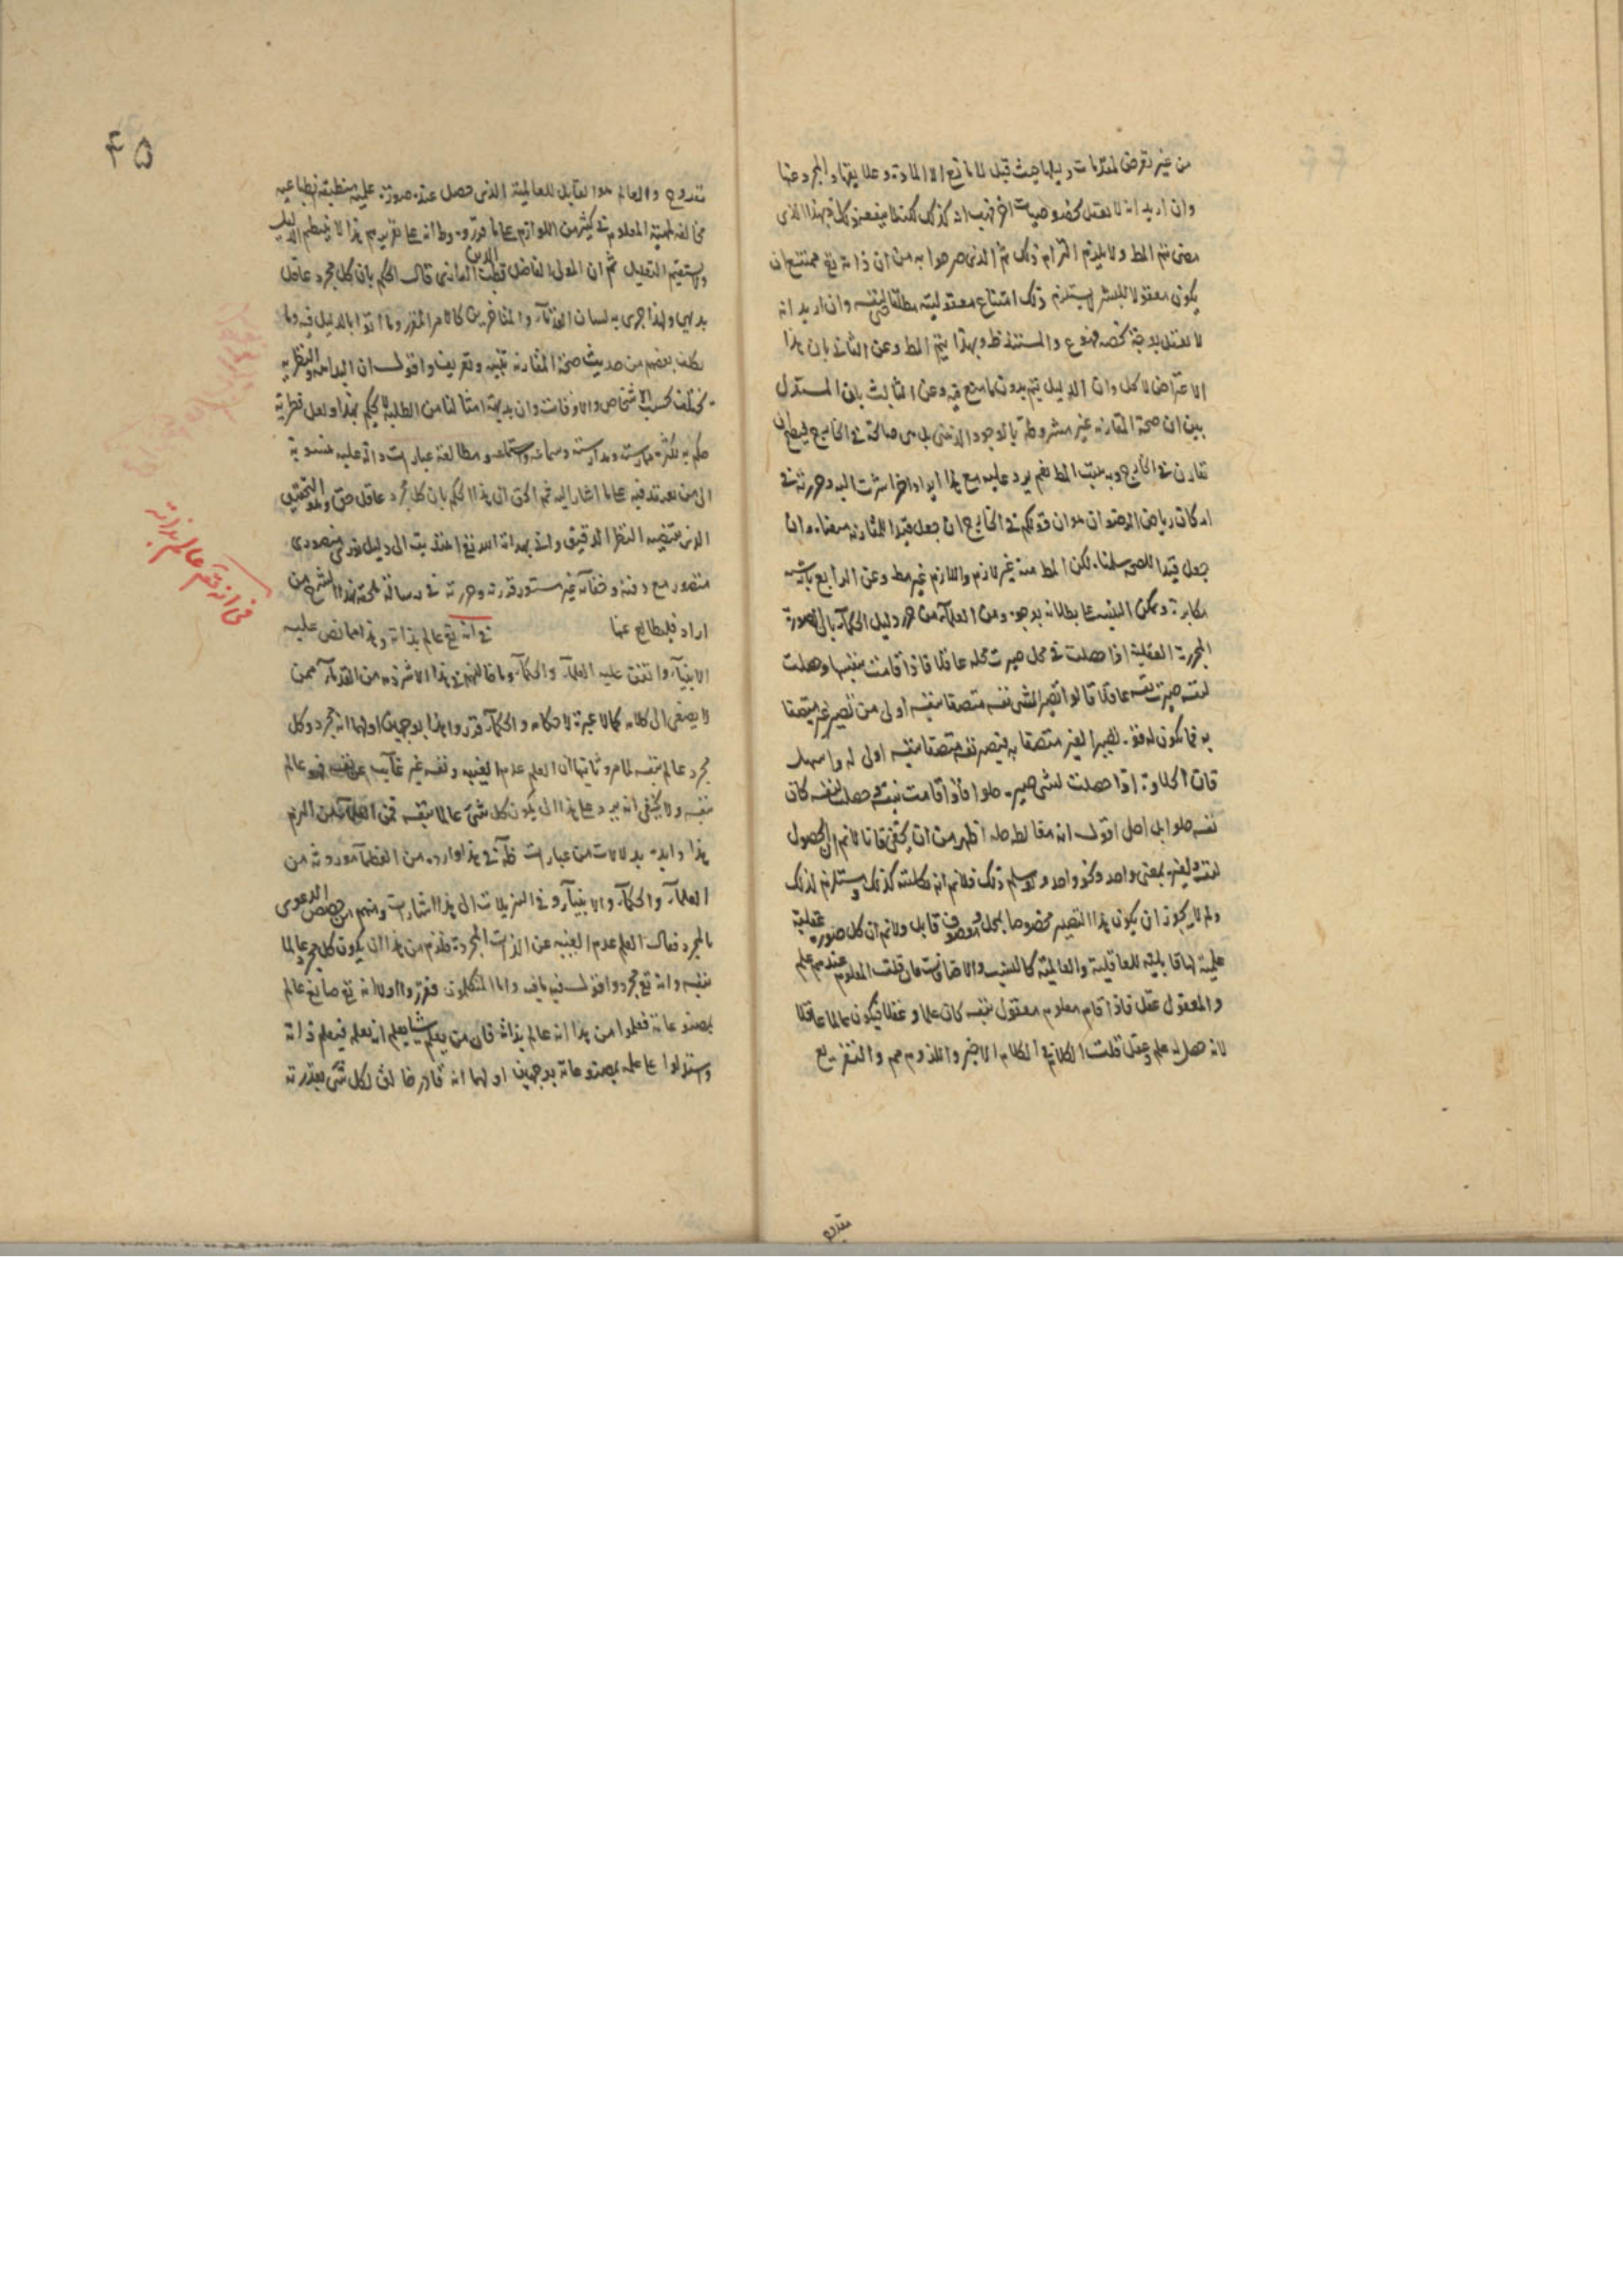 من غير تعرض لمقدمات دليلها حيث قيل لا مانع الا المادة وعلايقها والمجرد عنها
وان اريد انه لا يعقل بخصوصيات اخر فهب انه كذلك لكنه لا ينفعهم
يتم المط ولا يلزم التزام ذلك ثم الذي صرحوا به من ان ذاته تع ممتنع ان
يكون معقولا للبشر يستلزم ذلك امتناع معقوليته مطلقا لنفسه وان اريد انه
لا يعقل بوجه يخصه فممنوع والمستند ظ وبهذا يتم المط وعن الثاني بان هذا
الاعتراض لا كل وان الدليل يتم بدون ما منع فيه وعن الثالث بان المستدل
يبين ان صحة المقارنة غير مشروطة بالوجود الذهني بل هي صالحة في الخارج
تقارن في الخارج وبه يثبت المط نعم يرد عليه مع هذا ايراد اخر اشرت اليه وحررته في
رياض الرضوان هو ان قولكم في الخارج ان جعل قيدا للمقارنة منعناه وان
جعل قيدا للصحة سلمناه لكن المط منه غير لازم واللازم غير مط وعن الرابع بانه
مكابرة ويمكن التنبيه على بطلانه بوجوه ومن العلماء من حرر دليل الحكماء بان الصورة
المجردة العقلية اذا حصلت في محل صيرت محله عاقلا فاذا قامت بنفسها وحصلت
لنفسه صيرت نفسه عاقلا قالوا تصيير الشئ نفسه متصفا بنفسه اولى من تصيير غيره متصفا
به فما يكون له قوة تصيير الغير متصفا به فتصيير نفسه متصفا بنفسه اولى له واسهل
فان الحلاوة اذا حصلت لشئ صيره حلوا فاذا قامت بنفسه وحصلت لنفسه كان
نفسه حلوا بل اصل اقول انه مغالطة حله اظهر من ان يخفى فانا لا نم ان الحصول
لنفسه ولغيره بمعنى واحد ونحو واحد ولو سلم ذلك فلا نم انه مستلزم لذلك
ولم لا يجوز ان يكون هذا التصيير مخصوصا بمحل وموصوف قابل ولا نم ان كل صورة عقلية
علمية لها قابلية للعاقلية والعالمية كالنسب والاضافات فان قلت المعلوم عندهم علم
والمعقول عقل فاذا قام معلوم معقول بنفسه كان علما وعقلا فيكون عالما عاقلا
لانه حصل له علم وعقل قلت الكلام في الكلام الاخير واللزوم مم والتفريع
مقدوح
۴۵
مقدوح والعالم هو القابل للعالمية الذي حصل عنده صورة علمية منطبقة انطباعية
مخالفة لمهية المعلوم في كثير من اللوازم على ما قرروه وظ انه على تقريرهم هذا لا ينتظم الدليل
ويستقيم التعليل ثم ان المولى الفاضل قطب الدين قال الحكم بان كل مجرد عاقل
بديهي ولهذا جرى به لسان القدماء والمتاخرين كالامر المقرر وما اتوا بالدليل فيه وما
تكلف بعضهم من حديث صحة المقارنة تنبيه وتعريف واقول ان البداهة والنظرية
يختلف بحسب الاشخاص والاوقات وان بديهة امثالنا من الطلبة لا يحكم بهذا ولعل فطرته
حكم به لكثرة ممارسته ومدارسته وسماعه واستماعه ومطالعة عبارات دالة عليه منسوبة
الى من يعتقد فيه على ما اشار اليه ثم الحق ان هذا الحكم بان كل مجرد عاقل حق وهو التحقيق
الذي يقتضيه النظر الدقيق واني بهداية الله تع اهتديت الى دليل
منصور مع دقة وخفاء غير مستور قررته وحررته في رسالة من
اراد فليطالع عنها في انه تع عالم بذاته وهذا مما نص عليه
الانبياء واتفق عليه العلماء والحكماء وما خالفهم في هذا الا شرذمة من القدماء ممن
لا يصغى الى كلامه كما لا عبرة لاحكامه والحكماء قرروا هذا بوجهين اولهما انه مجرد وكل
مجرد عالم بنفسه لما مر وثانيهما ان العلم عدم الغيبة ونفسه غير غايب عن نفسه فهو عالم
بنفسه ولا يخفى انه يرد على هذا ان يكون كل شئ عالما بنفسه فمن العلماء من التزم
هذا وايده بدلالات من عبارات ظ في هذا واردة من العظماء موروثة من
العلماء والحكماء والانبياء وفي التنزيلات الى هذا اشارات ومنهم من خصص الدعوى
بالمجرد فقال العلم عدم الغيبة عن الذات المجردة فلزم من هذا ان يكون كل مجرد عالما
بنفسه وانه تع مجرد واقول فيه ما فيه واما المتكلمون فقرروا اولا انه تع صانع عالم
بمصنوعاته فعلموا من هذا انه عالم بذاته فان من يعلم شيئا يعلم انه يعلمه فيعلم ذاته
واستدلوا على علمه بمصنوعاته بوجهين اولهما انه قادر خالق لكل شئ بقدرته
في انه تع عالم بذاته